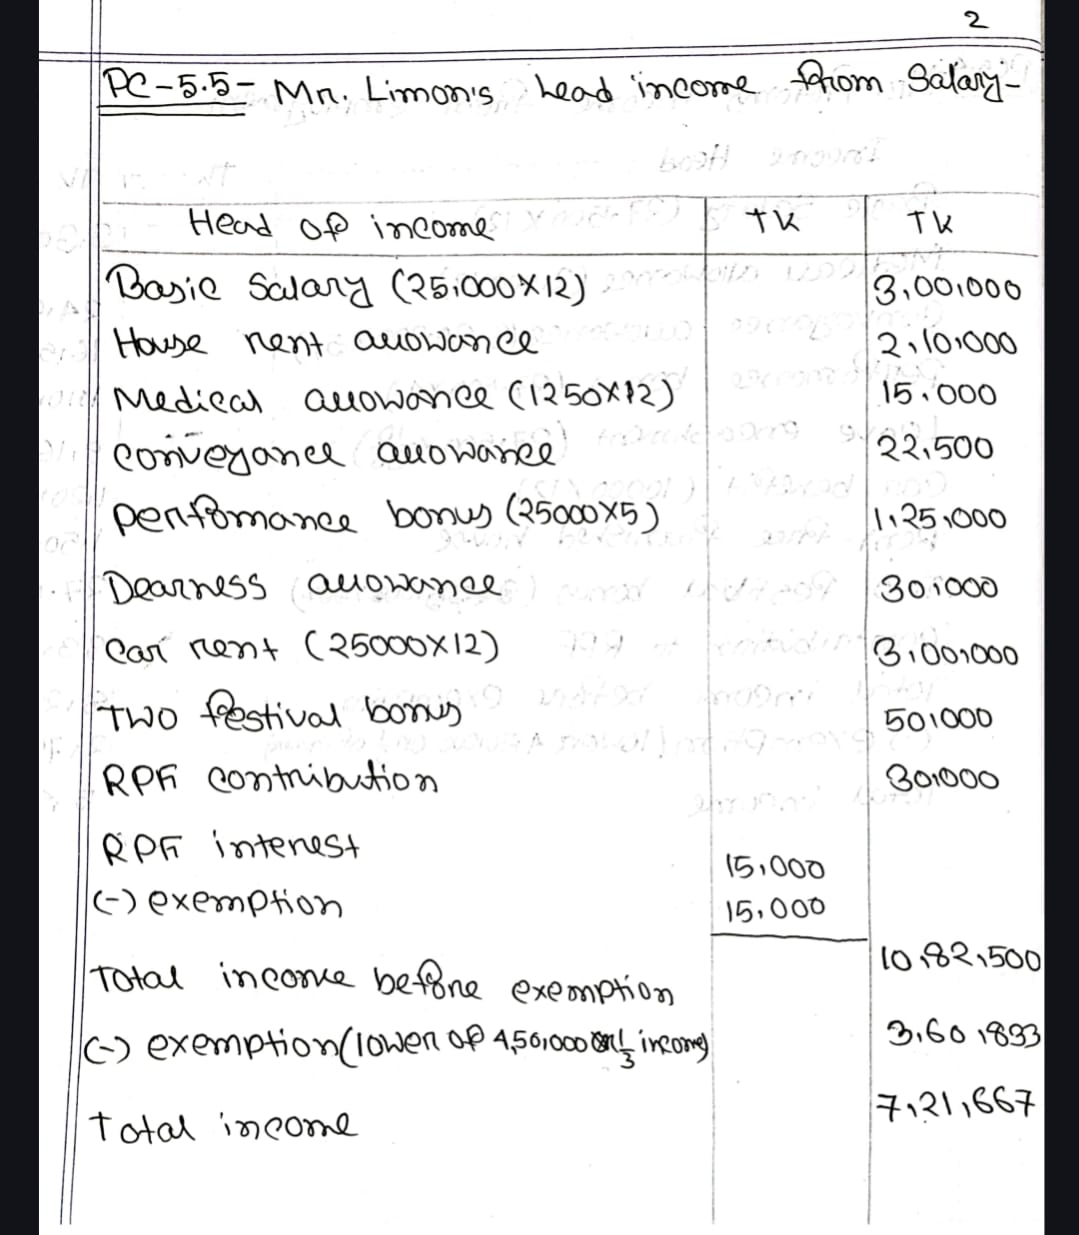 2
PC-5.5- Mr. Limon's head income from Salary-
Head of income TK TK
Basic Salary (25,000×12) 3,00,000
House rent allowance 2,10,000
Medical allowance (1250×12) 15,000
conveyance allowance 22,500
perfomance bonus (25000×5) 1,25,000
Dearness allowance 30,000
Car rent (25000×12) 3,00,000
Two festival bonus 50,000
RPF contribution 30,000
RPF interest 15,000
(-) exemption 15,000
Total income before exemption 10,82,500
(-) exemption (lower of 4,50,000 or 1/3 income) 3,60,833
Total income 7,21,667